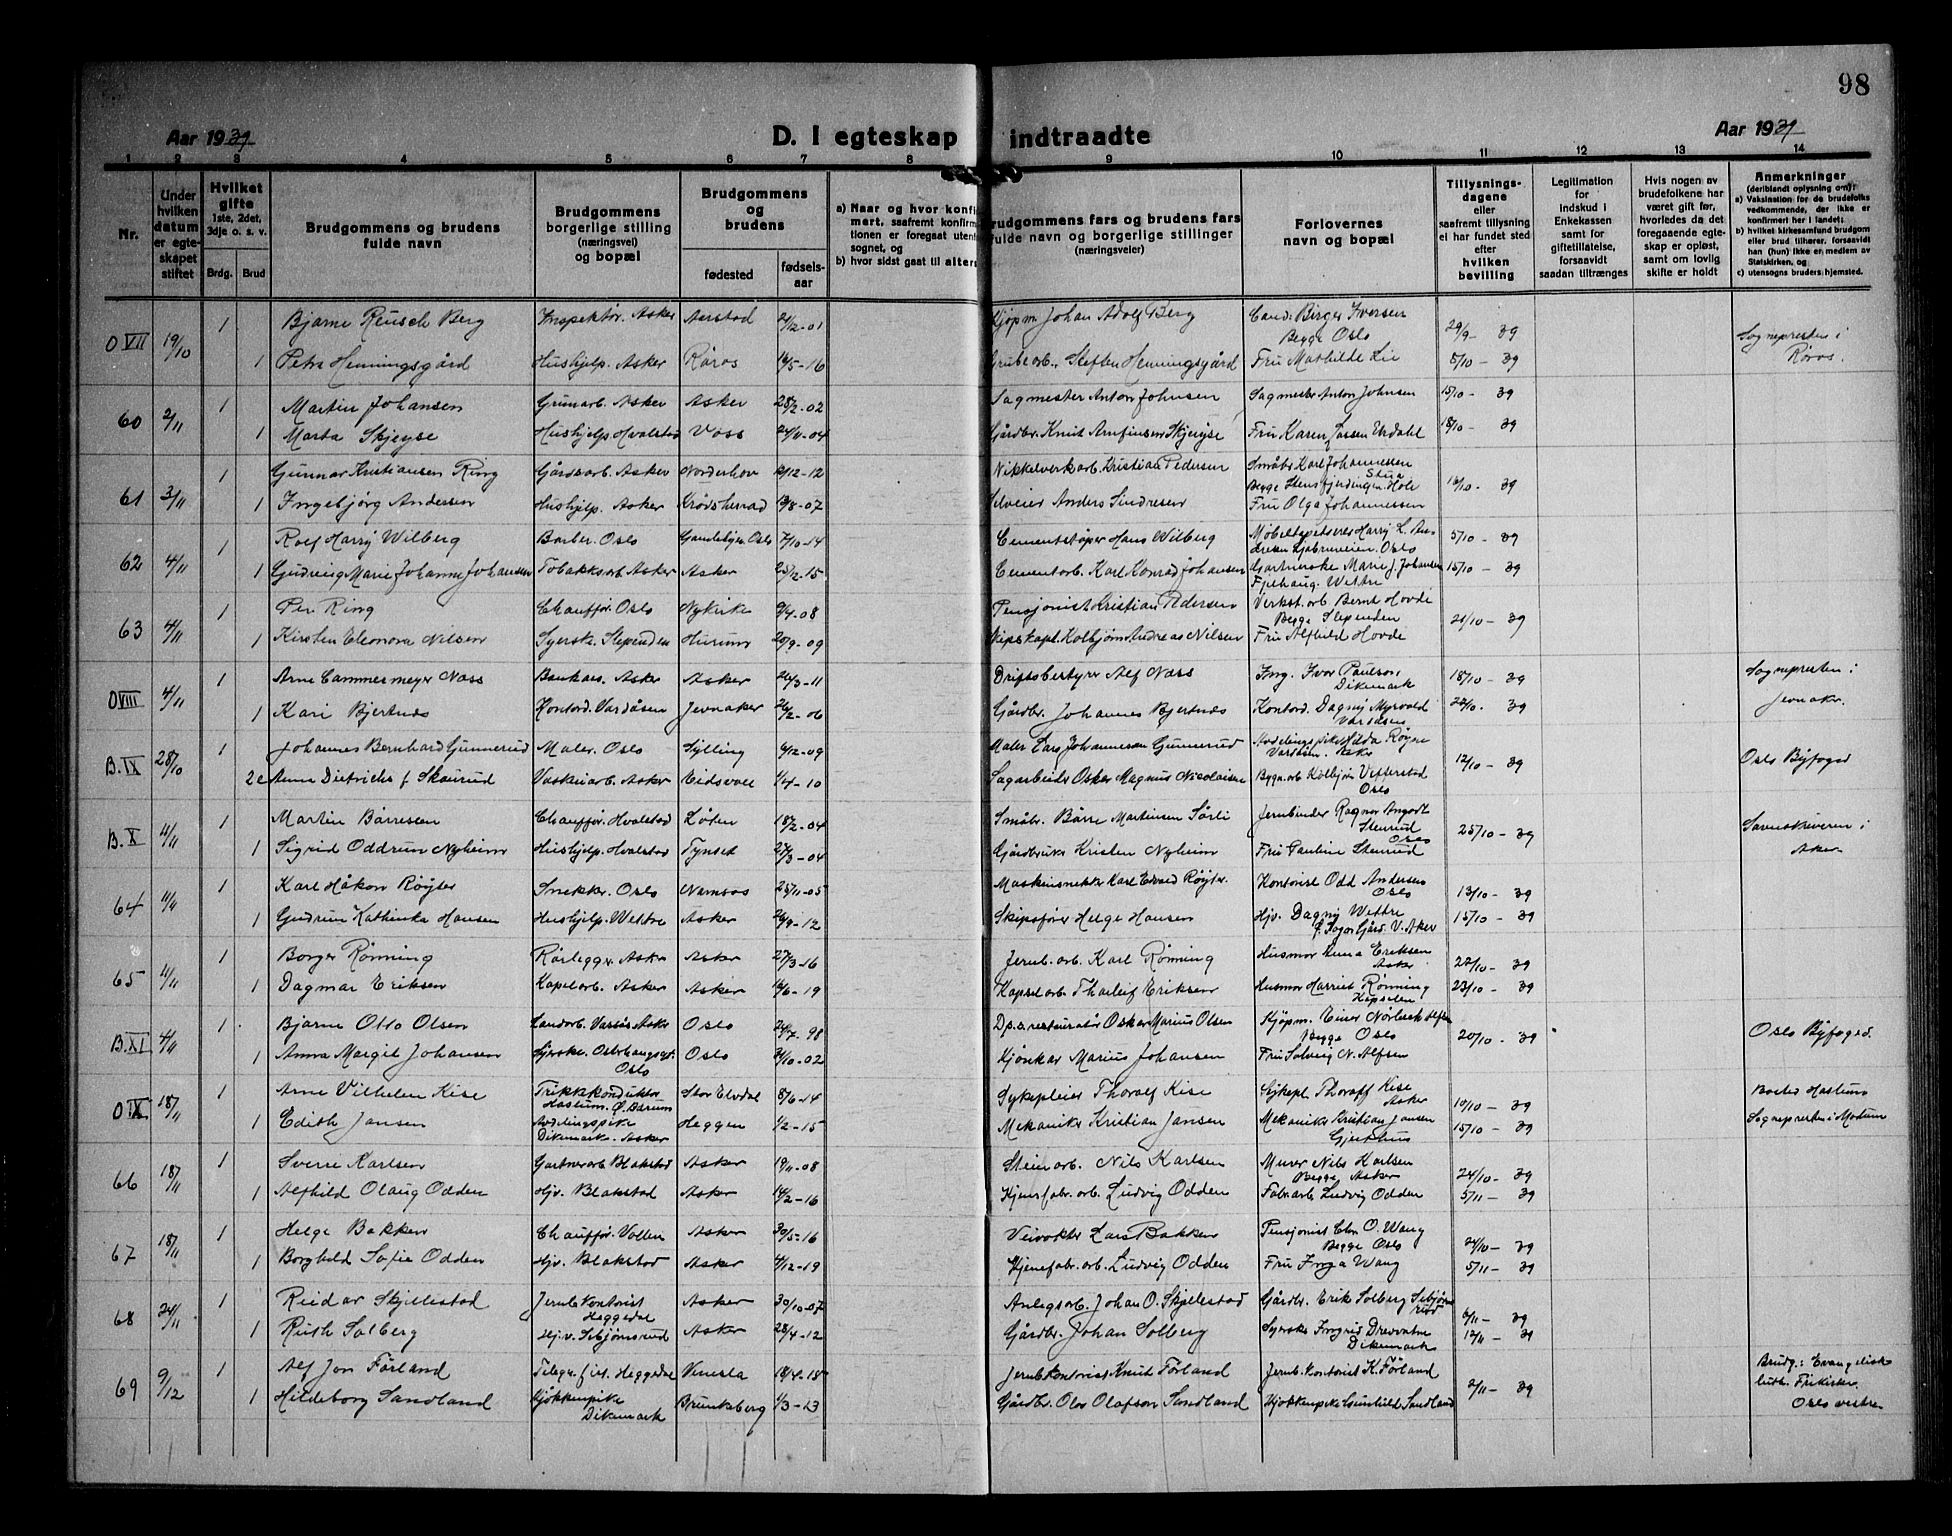 98
Aar 1939
D. I egteskap indtraadte
Aar 1939
1 2 3 4 5 6 7 8 9 10 11 12 13 14
Nr.
Under hvilken datum er egteskapet stiftet
Hvilket gifte 1ste, 2det, 3dje o. s. v.
Brdg. Brud
Brudgommens og brudens fulde navn
Brudgommens borgerlige stilling (næringsvei) og bopæl
Brudgommens og brudens
fødested fødselsaar
a) Naar og hvor konfi
mert, saafremt konfirm
tionen er foregaat utenf
sognet, og
b) hvor sidst gaat til alters
rudgommens fars og brudens fars fulde navn og borgerlige stillinger (næringsveier)
Forlovernes navn og bopæl
Tillysningsdagene eller saafremt tillysning ei har fundet sted efter hvilken bevilling
Legitimation for indskud i Enkekassen samt for giftetillatelse, forsaavidt saadan tiltrænges
Hvis nogen av brudefolkene har været gift før, hvorledes da det foregaaende egteskap er opløst, samt om lovlig skifte er holdt
Anmerkninger
(deriblandt oplysning om):
a) Vaksination for de brudefolks vedkommende, der ikke er konfirmert her i landet;
b) hvilket kirkesamfund brudgom eller brud tilhører, forsaavidt han (hun) ikke er medlem av Statskirken, og
c) utensogns bruders hjemsted.
O VII 19/10 1 Bjarne Reusch Berg Inspektør. Asker Aarstad 2/12-01 Kjøpm Johan Adolf Berg Cand. Birger Iversen Begge Oslo 29/9 - 39 Sognepresten i
1 Petra Henningsgård Hushjelp. Asker Røros 14/5-16 Grubearb. Steffen Henningsgård Fru Mathilde Lie 5/10 - 39 Røros.
60 2/11 1 Martin Johansen Grunarb. Asker Asker 28/2-02 Sagmester Anton Johnsen Sagmester Anton Johnsen 15/10 - 39
1 Marta Skjeyse Hushjelp Hvalstad Voss 24/11-04 Gårdbr. Knut Arnfinsen Skjeyse Fru Karen Jossen Urdahl 18/10 - 39
61 3/11 1 Gunnar Kristiansen Ring Gårdsarb. Asker Norderhov 12-12 Nikkelverkarb. Kristian Pedersen Småbr. Karl Johannessen Begge Stensfjerdingen Hole
1 Ingebjørg Andersen Hushjelp. Asker Krødsherrad 8-07 Anders Sindresen Fru Olga Johannessen 16/10 - 39
62 4/11 1 Rolf Harry Wilberg Barber. Oslo Gamlebyen. Oslo 7/10-14 Cementstøper Hans Wilberg Møbeltapetserer Harry L. Andresen Oslo 5/10 - 39
1 Gudrun Marie Johanne Johansen Tobakksarb Asker Asker 25/12-15 Cementarb. Karl Konrad Johansen Gartnerske Marie J. Johansen Fjelhaug. Wettre 15/10 - 39
63 4/11 1 Per Ring Chauffør. Oslo Nykirke 9/4-08 Pensjonist Kristian Pedersen Verkst. arb Bernt Hovde Begge Slependen
1 Kirsten Eleonora Nilsen Syerske. Slependen Hurum 20/9-09 Skipskapt. Kolbjørn Andreas Nilsen Fru Alfhild Hovde 21/10 - 39
O VIII 4/11 1 Arne Cammermeyer Næss Bankass. Asker Asker 24/3-11 Driftsbestyrer Alf Næss Ing. Ivor Paulson, Dikemark 18/10 - 39 Sognepresten i
1 Kari Bjertnæs Kontord. Vardåsen Jevnaker 26/2-06 Gårdbr. Johannes Bjertnæs Kontord. Dagny Myrvold Vardåsen 22/10 - 39 Jevnaker.
B. IX 28/10 1 Johannes Bernhard Gunnerud Maler. Oslo Sylling 6/12-09 Maler Lars Johannesen Gunnerud Avdelingspike Hilda Røyne Vardåsen. Asker
2 Anne Dietrichs f. Skaurud Vaskeriarb. Asker Eidsvoll 1/4-10 Sagarbeider Oskar Magnus Nicolaisen Bygn. arb Kolbjørn Vetterstad Oslo 12/10 - 39 Oslo Byfoged
B. X 4/11 1 Martin Børresen Chauffør. Hvalstad Løten 18/2-04 Småbr. Børre Martinsen Sørli Jernbinder Ragnar Stenrud Oslo 25/10 - 39 Sorenskriveren i
1 Sigrid Oddrun Nyheim Hushjelp. Hvalstad Tynset 27/3-04 Gårdbruker Kristen Nyheim Fru Pauline Stenrud Aker
64 11/11 1 Karl Håkon Røyter Snekker. Oslo Namsos 25/11-05 Maskinsnekker Karl Edvard Røyter. Kontorist Odd Andersen Oslo 13/10 - 39
1 Gudrun Kathinka Hansen Hushjelp. Wettre Asker 26/9-12 Skipsfører Helge Hansen Hjv. Dagny Wettre V. Aker 15/10 - 39
65 11/11 1 Borger Rønning Rørlegger. Asker Asker 27/3-16 Jernb. arb. Karl Rønning Husmor Anna Eriksen Asker 22/10 - 39
1 Dagmar Eriksen Kapselarb. Asker Asker 14/6-19 Kapselarb Thorleif Eriksen Husmor Harriet Rønning Kapselen 23/10 - 39
B. XI 4/11 1 Bjarne Otto Olsen Landarb. Asker Oslo 24/7-98 Dp.s.restauratør Oskar Marius Olsen Kjøpm. Einar Nørbeck Alfsen Begge Oslo 20/10 - 39 Oslo Byfoged.
1 Anna Margit Johansen Syerske. Oslo Oslo 31/10-02 Marius Johansen Fru Solveig N. Alfsen
O IX. 18/11 1 Arne Vilhelm Kise Trikkekonduktør Haslum. Ø. Bærum Stor Elvdal 8/6-14 Sykepleier Thoralf Kise Sykepl. Thoralf Kise Asker 10/10 - 39 Bosted Haslum
1 Edith Jansen Avdelingspike Dikemark. Asker Heggen 1/2-15 Mekaniker Kristian Jansen Mekaniker Kristian Jansen Gjethus 15/10 - 39 Sognepresten i Modum
66 18/11 1 Sverre Karlsen Gartnerarb Blakstad Asker 19/11-08 Stenarb. Nils Karlsen Murer Nils Karlsen Begge Asker 24/10 - 39
1 Alfhild Olaug Odden Hjv. Blakstad Asker 14/2-16 Kjemfabr. arb. Ludvig Odden Fabrarb Ludvig Odden 5/11 - 39
67 18/11 1 Helge Bakken Chauffør. Vollen Asker 30/5-16 Veivokter Lars Bakken Pensjonist Chr. O. Wang Begge Oslo 24/10 - 39
1 Borghild Sofie Odden Hjv. Blakstad Asker 4/12-19 Kjemfabr. arb. Ludvig Odden Fru Inga Wang 5/11 - 39
68 24/11 1 Reidar Skjellestad Jernb. Kontorist Heggedal Asker 30/10-07 Anlegsarb. Johan O. Skjellestad Gårdbr. Erik Solberg Sebjørnsrud 6/11 - 39
1 Ruth Solberg Hjv. Sebjørnsrud Asker 28/4-12 Gårdbr. Johan Solberg Syerske Ingrid Drevvatne Dikemark 12/11 - 39
69 9/12 1 Alf Jon Førland Telegrafist. Heggedal Vennesla 18/4-18 Jernb kontorist Knut Førland Jernb. Kontorist K. Førland Brudg.: Evangelisk
1 Hildeborg Sandland Kjøkkenpike Dikemark Brunkeberg 1/3-13 Gårdbr. Olav Olafson Sandland Kjøkkenpike Gunhild Sandland 2/11 - 39 luth. Frikirke. Oslo vestre